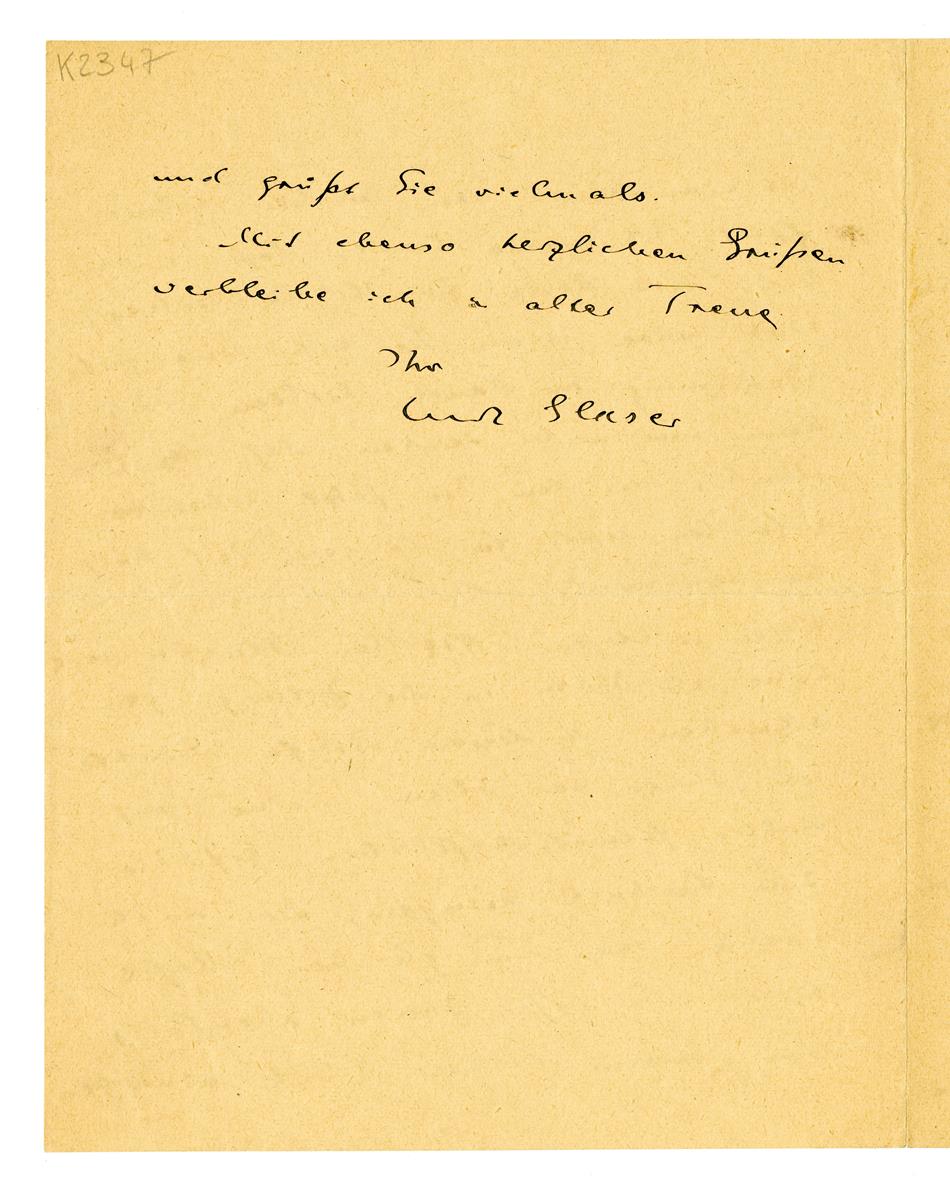 K2347
und grüßt Sie vielmals.
Mit ebenso herzlichen Grüßen
verbleibe ich in alter Treue
Ihr
Curt Glaser